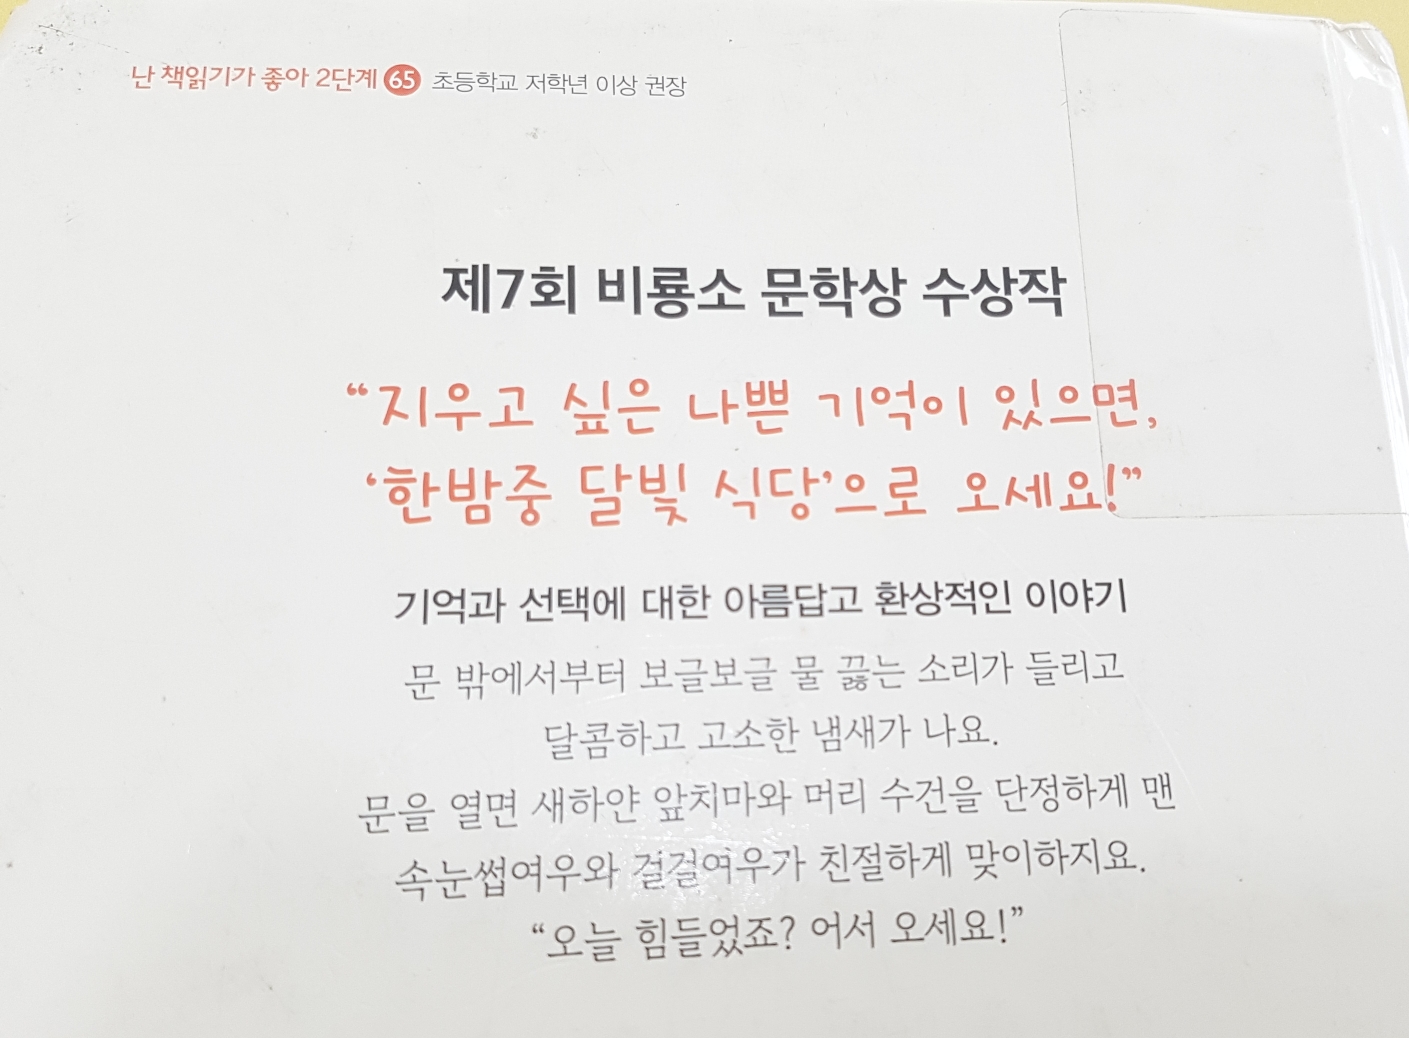 난 책읽기가 좋아 2단계 65 초등학교 저학년 이상 권장
제7회 비룡소 문학상 수상작
“지우고 싶은 나쁜 기억이 있으면,
‘한밤중 달빛 식당’으로 오세요!”
기억과 선택에 대한 아름답고 환상적인 이야기
문 밖에서부터 보글보글 물 끓는 소리가 들리고
달콤하고 고소한 냄새가 나요.
문을 열면 새하얀 앞치마와 머리 수건을 단정하게 맨
속눈썹여우와 걸걸여우가 친절하게 맞이하지요.
“오늘 힘들었죠? 어서 오세요!”